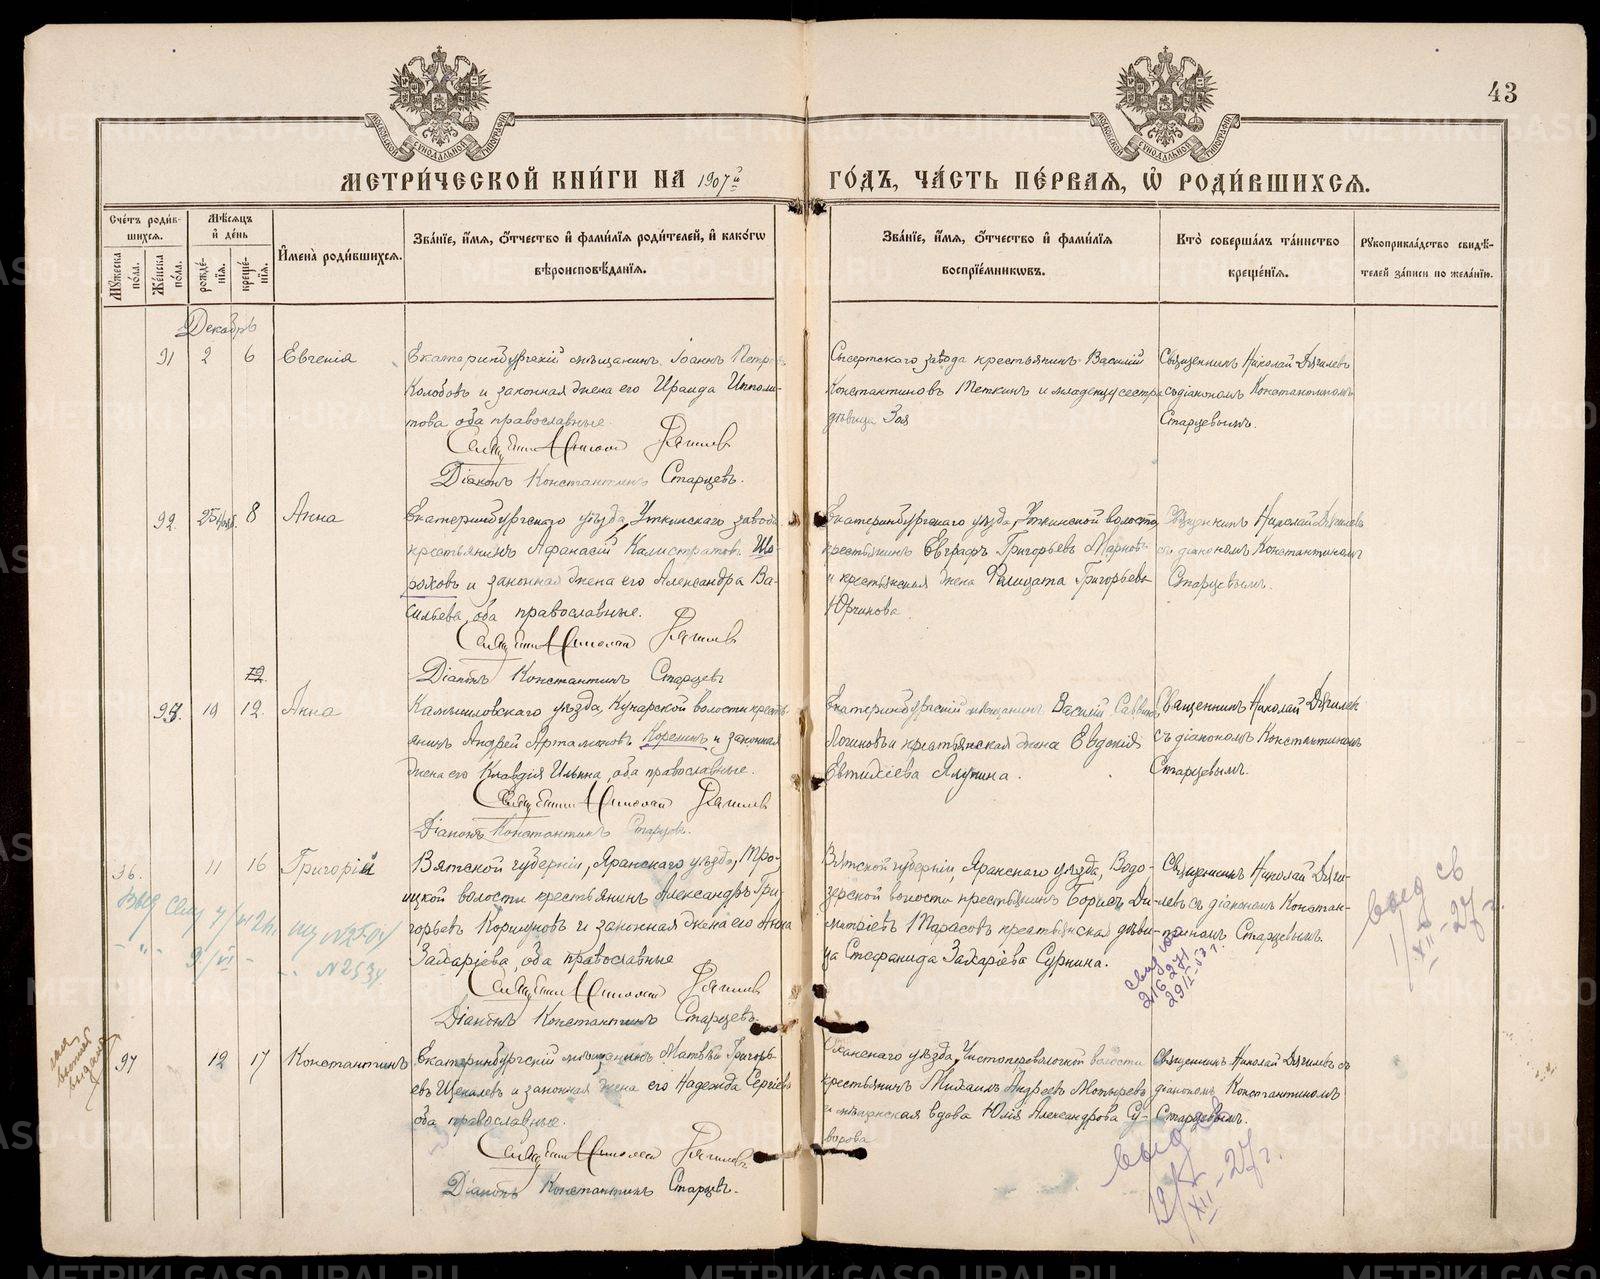 43
МЕТРИ́ЧЕСКОЙ КНИ́ГИ НА 1907й ГО́ДЪ, ЧА́СТЬ ПЕ́РВАЯ, Ѡ РОДИ́ВШИХСѦ.
Сче́тъ роди́в-
шихсѧ.
Мꙋ́жеска по́ла.
Же́нска по́ла.
Мѣ́сѧцъ и де́нь
рожде́-
нїѧ.
креще́-
нїѧ.
И҆мена̀ роди́вшихсѧ.
Зва́нїе, и҆́мѧ, ѻ҆́тчество и҆ фами́лїѧ роди́телей, и҆ како́гѡ
вѣроисповѣ́данїѧ.
Зва́нїе, и҆́мѧ, ѻ҆́тчество и҆ фами́лїѧ
воспрїе́мникѡвъ.
Кто̀ соверша́лъ та́инство
креще́нїѧ.
Рꙋкоприкла́дство свидѣ́-
телей за́писи по жела́нїю.
Декабрь
91 2 6 Евгенія
Екатеринбургскій мѣщанинъ Іоаннъ Петр
Колобовъ и законная жена его Ираида Ипполи-
това оба православные
Священникъ Николай Дягилевъ
Діаконъ Константинъ Старцевъ.
Сысертского завода крестьянинъ Василій
Константиновъ Меткинъ и сестра
дѣвица Зоя
Священникъ Николай Дягилевъ
съ діакономъ Константиномъ
Старцевымъ.
92 25 Нояб. 8 Анна
Екатеринбургского уѣзда, Уткинскаго завода
крестьянинъ Афанасій Калистратовъ Шо-
роховъ и законная жена его Александра Ва-
сильева, оба православные.
Священникъ Николай Дягилевъ
Діаконъ Константинъ Старцевъ
Екатеринбургского уѣзда, Уткинской волости
крестьянинъ Евграфъ Григорьевъ Марковъ
и крестьянская жена Фелицата Григорьева
Юрчикова
Священникъ Николай Дягилевъ
съ діакономъ Константиномъ
Старцевымъ.
12
93. 10 12. Анна
Камышловскаго уѣзда, Кунарской волости кресть-
янинъ Андрей Артамоновъ Корелинъ и законная
жена его Клавдія Ильина, оба православные.
Священникъ Николай Дягилевъ
Діаконъ Константинъ Старцевъ.
Екатеринбургскій мѣщанинъ Василій Саввинъ
Логиновъ и крестьянская жена Евдокія
Евтихіева Ялунина.
Священникъ Николай Дягилев
съ діакономъ Константиномъ
Старцевымъ.
96. 11 16 Григорій
Вятской губерніи, Яранского уѣзда, Тро-
ицкой волости крестьянинъ Александръ Гри-
горьевъ Коршуновъ и законная жена его Анна
Захаріева, оба православные
Священникъ Николай Дягилевъ
Діаконъ Константинъ Старцевъ.
Вятской губерніи, Яранского уѣзда, Водо-
зерской волости крестьянинъ Борисъ Ди-
митріевъ Тарасовъ и крестьянская дѣви-
ца Стефанида Захаріева Суркина.
Священникъ Николай Дяги-
левъ съ діакономъ Константи-
номъ Старцевымъ.
9/VI - №2534
выд св
1/XII-27г.
97 12 17 Константинъ
Екатеринбургскій мѣщанинъ Матвѣй Григорь-
евъ Щекалевъ и законная жена его Надежда Сергіева
оба православные.
Священникъ Николай Дягилевъ
Діаконъ Константинъ Старцевъ.
Оханскаго уѣзда, Чистопереволочной волости
крестьянинъ Михаилъ Андреевъ Мотыревъ
и мѣщанская вдова Юлія Александрова Су-
ворова
Священникъ Николай Дягилевъ съ
діакономъ Константиномъ
Старцевымъ.
XII-27г.